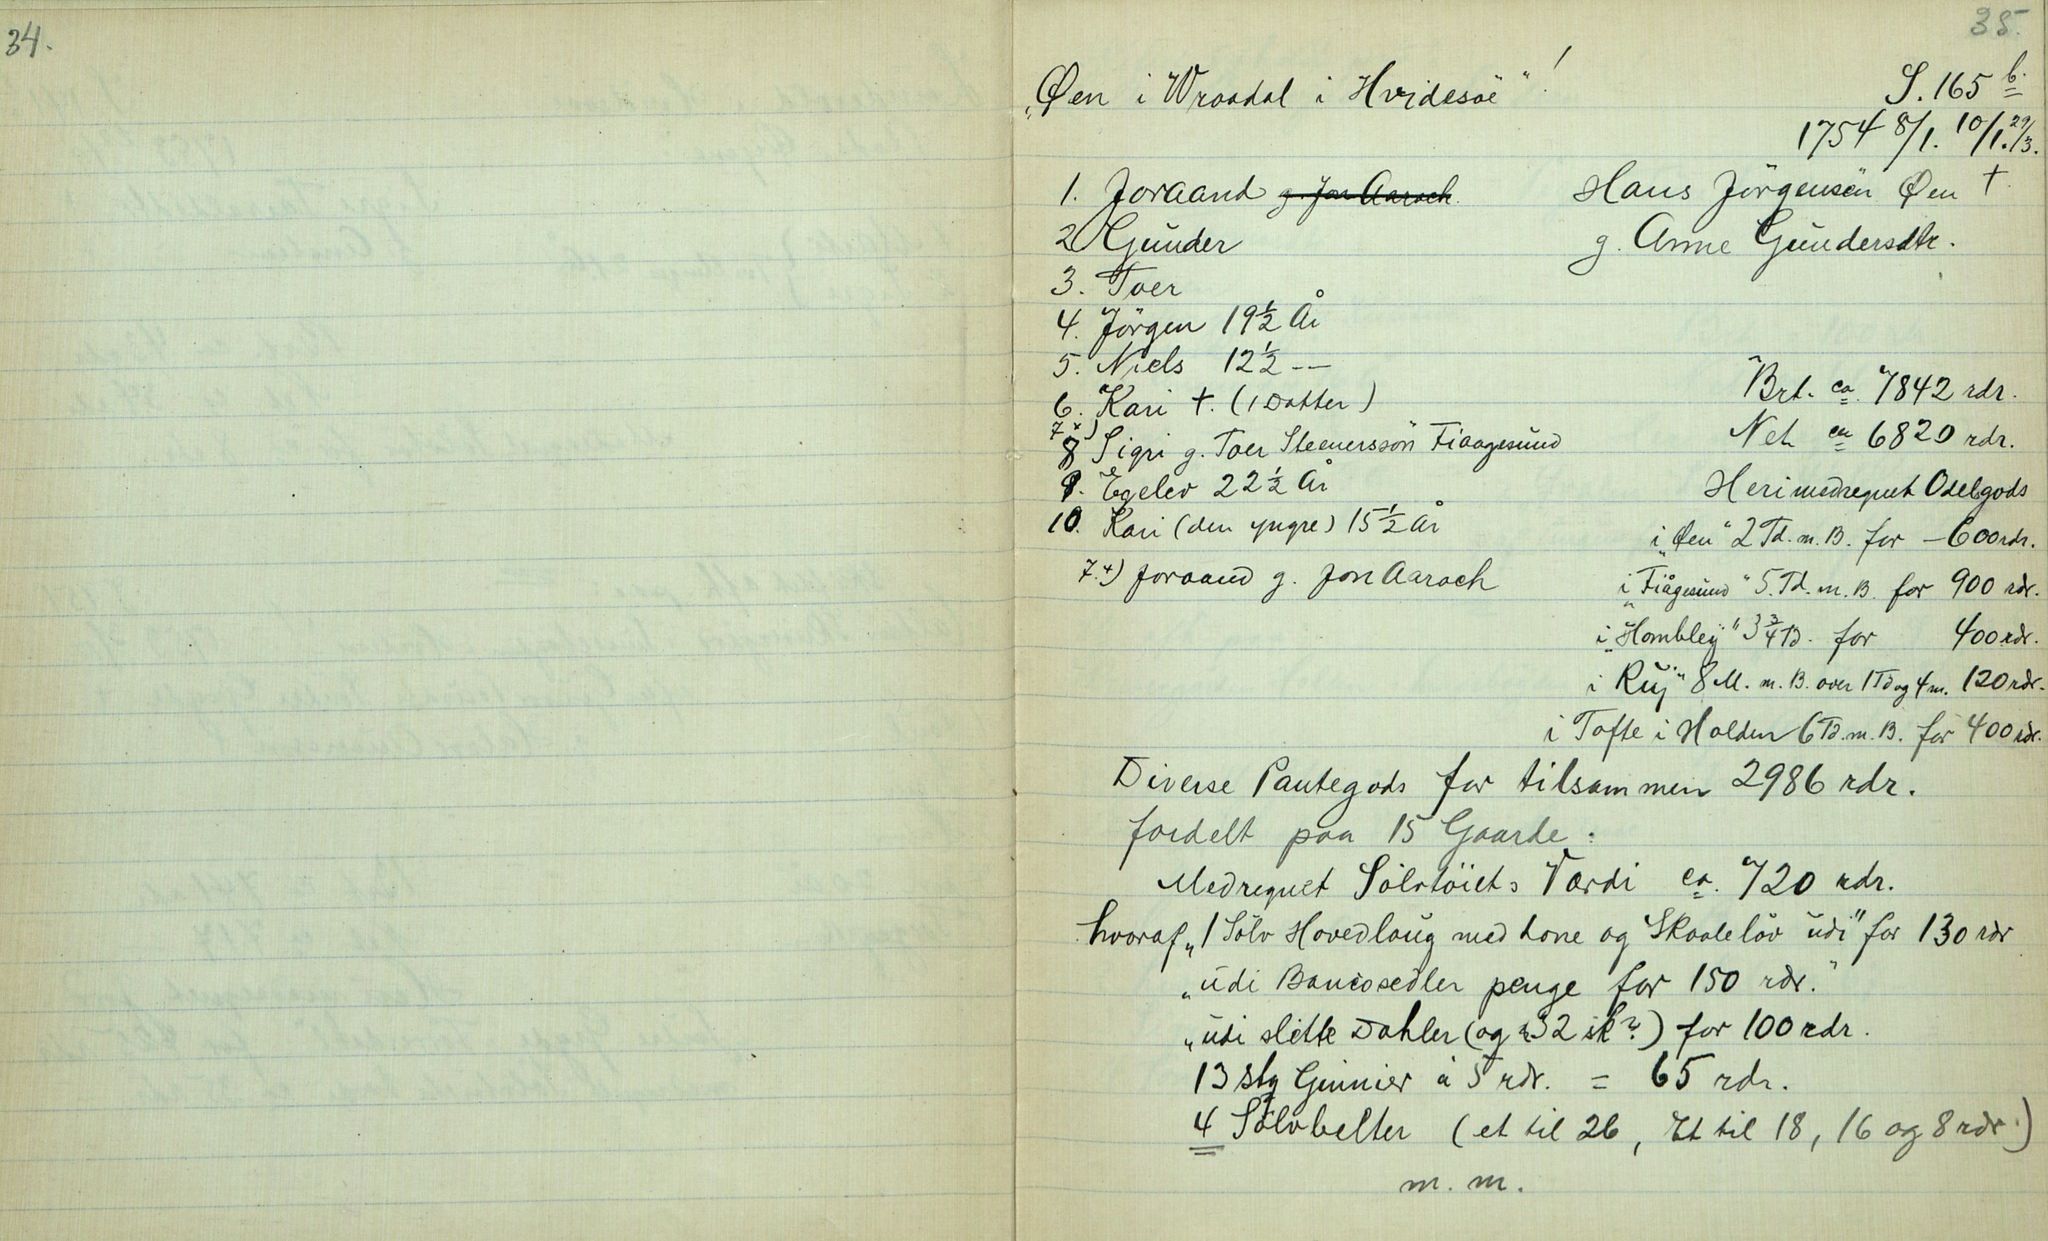 34.
35.
„Øen i Wraadal i Hvidesöe"!
S. 165 b.
1754 8/1. 10/1. 29/3.
1. Joraand g. Jon Aaroch.
Hans Jörgensön Øen †.
2 Gunder
g. Anne Gundersdtr.
3. Toer
4. Jörgen 19½ År
5. Niels 12½ —
6. Kari †. (1 Datter)
Brt. ca. 7842 rdr.
7 x)
8 Sigri g. Toer Steenersön Fiaagesund
Net ca 6820 rdr.
9. Egelev 22½ År
Heri medregnet Odelsgods
10. Kari (den yngre) 15½ År
i „Øen" 2 Td. m. B. for – 600 rdr.
7. x) Joraand g. Jon Aaroch
i „Fiågesund" 5. Td. m. B. for 900 rdr.
i „Hombley" 3¾ TB. for 400 rdr.
i Ruj" 8 M. m. B. over 1 Td og 4 m. 120 rdr.
i Tofte i Holden 6 Td. m. B. for 400 rdr.
Diverse Pantegods for tilsammen 2986 rdr.
fordelt paa 15 Gaarde.
Medregnet Sölvtöiets Værdi ca. 720 rdr.
hvoraf „1 Sölv Hovedlaug med Lone og Skaalelöv udi" for 130 rdr
„udi Bancosedler penge for 150 rdr."
„udi slette Dahler (og 32 sk?) for 100 rdr.
13 stg Ginnier à 5 rdr. = 65 rdr.
4 Sölvbelter (et til 26, Et til 18, 16 og 8 rdr.)
m. m.